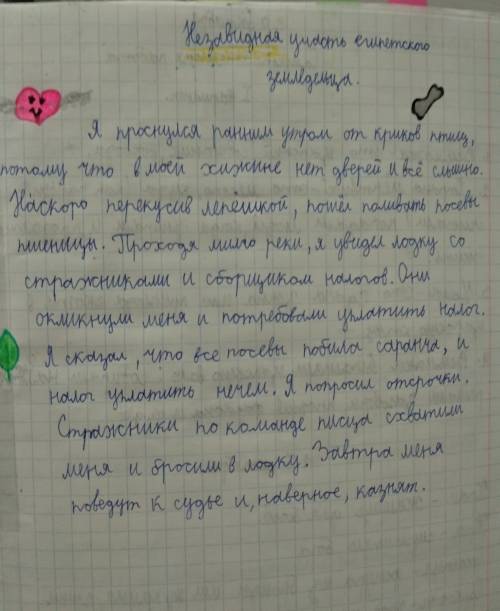 Незавидная участь египетского
земледельца.
Я проснулся ранним утром от криков птиц,
потому что в моей хижине нет дверей и всё слышно.
Наскоро перекусив лепёшкой, пошёл поливать посевы
пшеницы. Проходя мимо реки, я увидел лодку со
стражниками и сборщиком налогов. Они
окликнули меня и потребовали уплатить налог.
Я сказал, что все посевы побила саранча, и
налог уплатить нечем. Я попросил отсрочки.
Стражники по команде писца схватили
меня и бросили в лодку. Завтра меня
поведут к судье и, наверное, казнят.